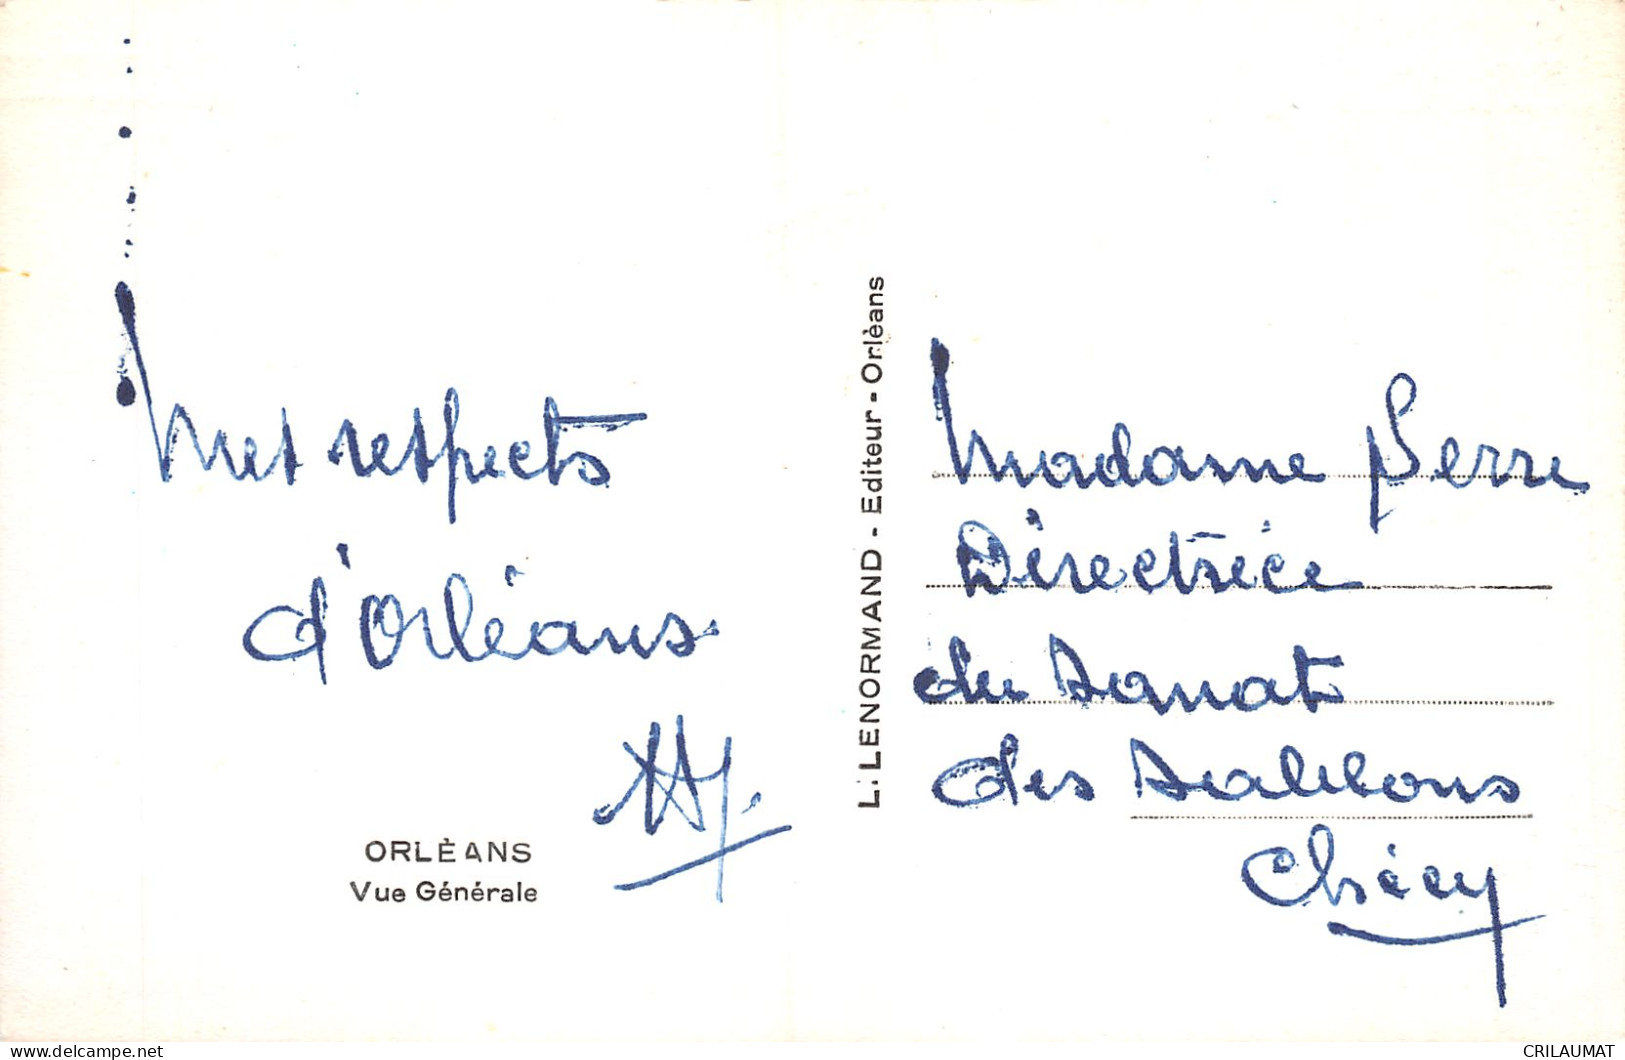 Mes respects
d'Orléans.
ORLÈANS
Vue Générale
L. LENORMAND - Editeur - Orlèans
Madame Serre
Directrice
du Sanat
des Sablons
Chécy
www.delcampe.net
CRILAUMAT